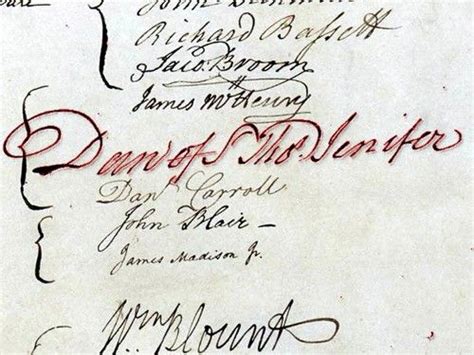 Richard Bassett
Jaco: Broom
James McHenry
Dan of St Thos. Jenifer
Danl Carroll
John Blair –
James Madison Jr.
Wm Blount